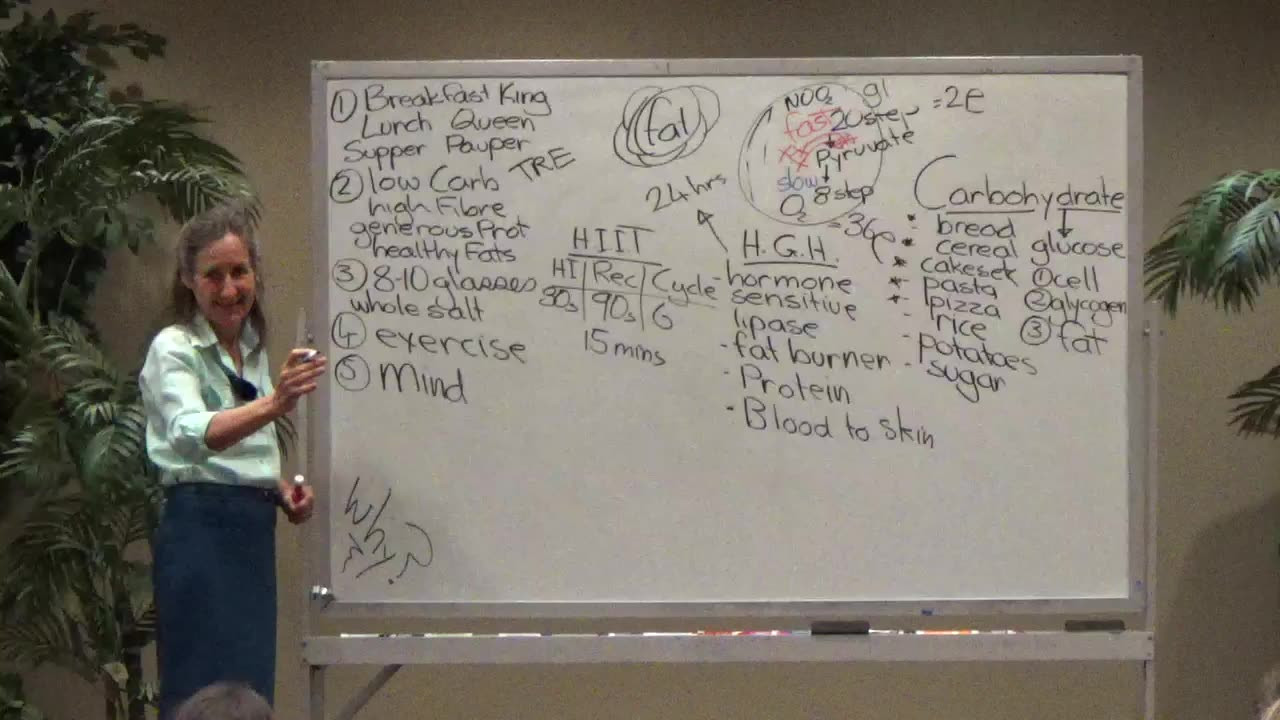 ① Breakfast King
Lunch Queen
Supper Pauper
TRE
② low Carb
high Fibre
generous Prot
healthy Fats
③ 8-10 glasses
whole salt
④ exercise
⑤ Mind
Why?
fat
24 hrs
HIIT
HI | Rec | Cycle
30s | 90s | 6
15 mins
NO O₂
gl
fast 20 step
= 2e
Pyruvate
slow
8 step
O₂
= 36e
H.G.H.
- hormone
sensitive
lipase
- fat burner
- Protein
- Blood to skin
Carbohydrate
* bread
* cereal
* cakes
* pasta
- pizza
- rice
- potatoes
- sugar
glucose
① cell
② glycogen
③ fat